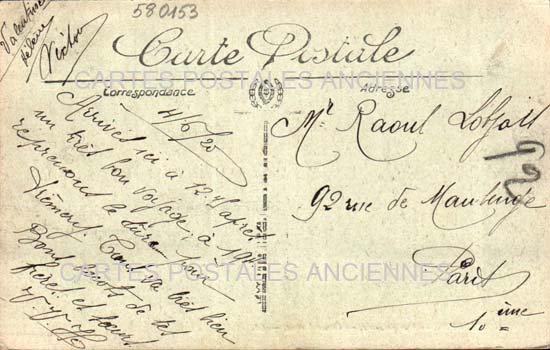 580153
Valentine
Victor
Carte Postale
CARTES POSTALES ANCIENNES
Correspondance
Adresse
4/6/20
Arrivés ici à 12 h après
un très bon voyage, à 19h
reprenons le train pour
Tout va très bien
Bons de tes
frère et sœurs
Mr Raoul
92 rue de Maubeuge
Paris
10ème
CARTES POSTALES ANCIENNES